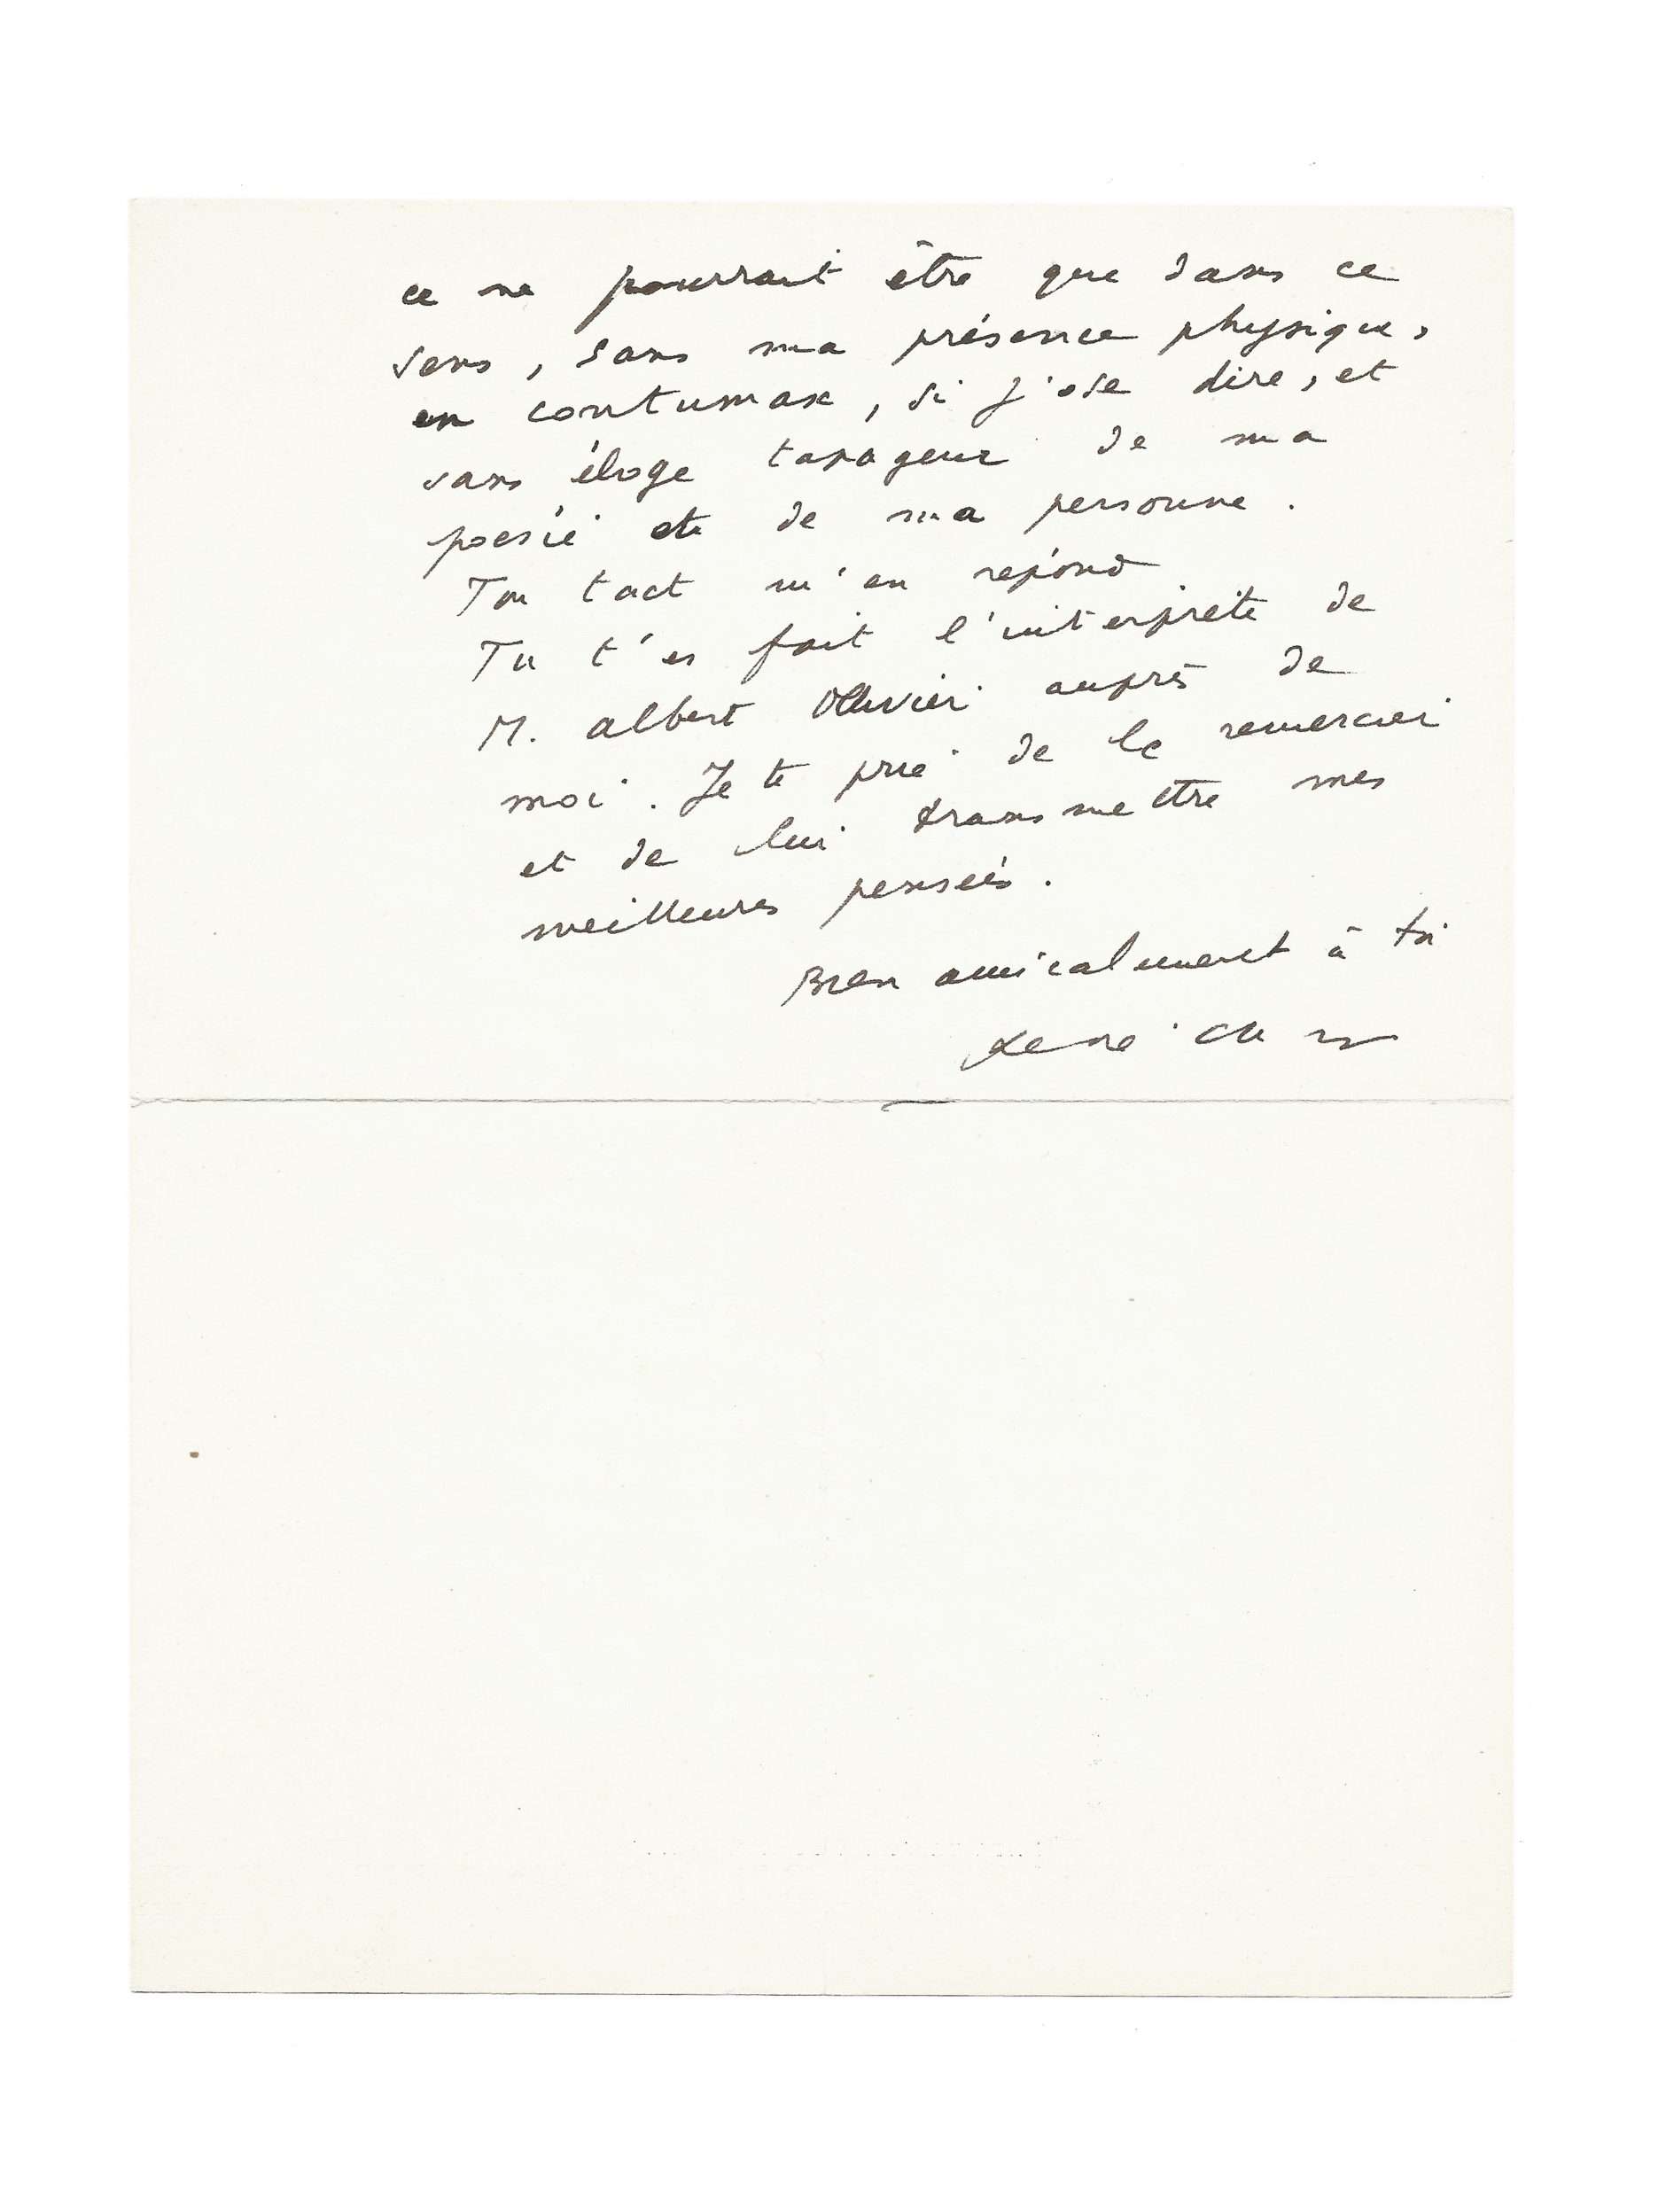 ce ne pourrait être que dans ce
sens, sans ma présence physique,
en contumax, si j'ose dire, et
sans éloge tapageur de ma
poésie et de ma personne.
Ton tact m'en répond
Tu t'es fait l'interprète de
M. Albert Ollivier auprès de
moi. Je te prie de le remercier
et de lui transmettre mes
meilleures pensées.
Bien amicalement à toi
René Char